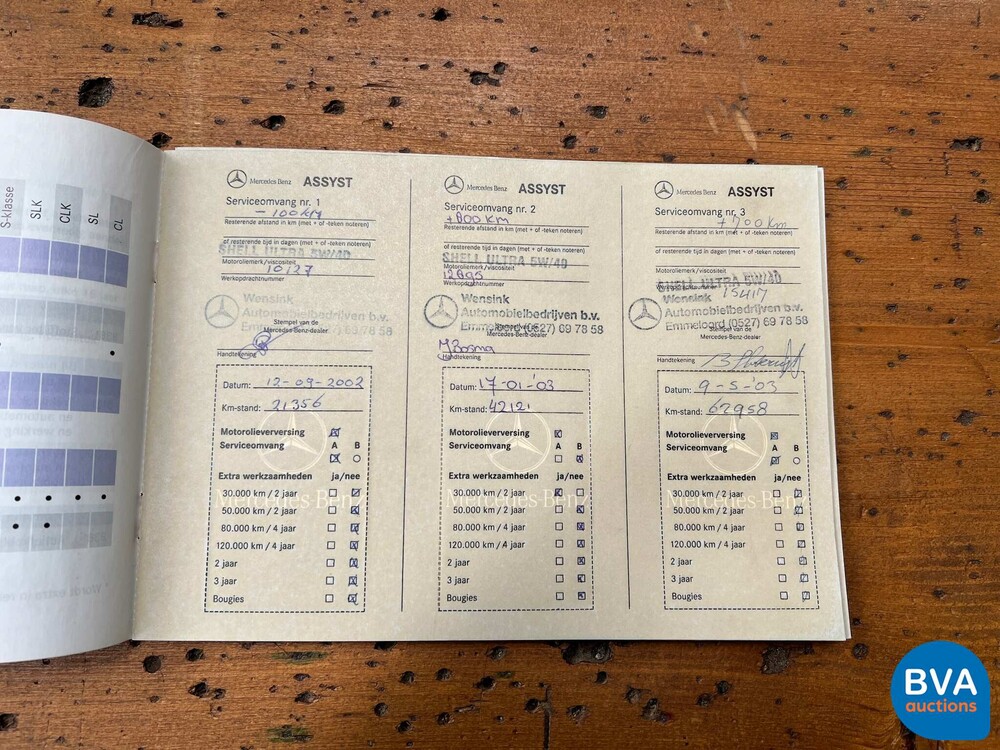 S-klasse
SLK
CLK
SL
CL
Mercedes Benz ASSYST
Serviceomvang nr. 1
- 100 KM
Resterende afstand in km (met + of -teken noteren)
of resterende tijd in dagen (met + of -teken noteren)
SHELL ULTRA 5W/40
Motoroliemerk/viscositeit
10127
Werkopdrachtnummer
Wensink
Automobielbedrijven b.v.
Emmeloord (0527) 69 78 58
Stempel van de
Mercedes-Benz-dealer
Handtekening
Datum: 12-09-2002
Km-stand: 21356
Motorolieverversing
Serviceomvang A B
Extra werkzaamheden ja/nee
30.000 km / 2 jaar
50.000 km / 2 jaar
80.000 km / 4 jaar
120.000 km / 4 jaar
2 jaar
3 jaar
Bougies
Mercedes-Benz
Mercedes Benz ASSYST
Serviceomvang nr. 2
+ 800 KM
Resterende afstand in km (met + of -teken noteren)
of resterende tijd in dagen (met + of -teken noteren)
SHELL ULTRA 5W/40
Motoroliemerk/viscositeit
12895
Werkopdrachtnummer
Wensink
Automobielbedrijven b.v.
Emmeloord (0527) 69 78 58
Stempel van de
Mercedes-Benz-dealer
Handtekening
Datum: 17-01-'03
Km-stand: 42121
Motorolieverversing
Serviceomvang A B
Extra werkzaamheden ja/nee
30.000 km / 2 jaar
50.000 km / 2 jaar
80.000 km / 4 jaar
120.000 km / 4 jaar
2 jaar
3 jaar
Bougies
Mercedes-Benz
Mercedes Benz ASSYST
Serviceomvang nr. 3
+ 700 km
Resterende afstand in km (met + of -teken noteren)
of resterende tijd in dagen (met + of -teken noteren)
SHELL ULTRA 5W/40
15417
Wensink
Automobielbedrijven b.v.
Emmeloord (0527) 69 78 58
Stempel van de
Mercedes-Benz-dealer
Handtekening
Datum: 9-5-'03
Km-stand: 62958
Motorolieverversing
Serviceomvang A B
Extra werkzaamheden ja/nee
30.000 km / 2 jaar
50.000 km / 2 jaar
80.000 km / 4 jaar
120.000 km / 4 jaar
2 jaar
3 jaar
Bougies
Mercedes-Benz
BVA
auctions